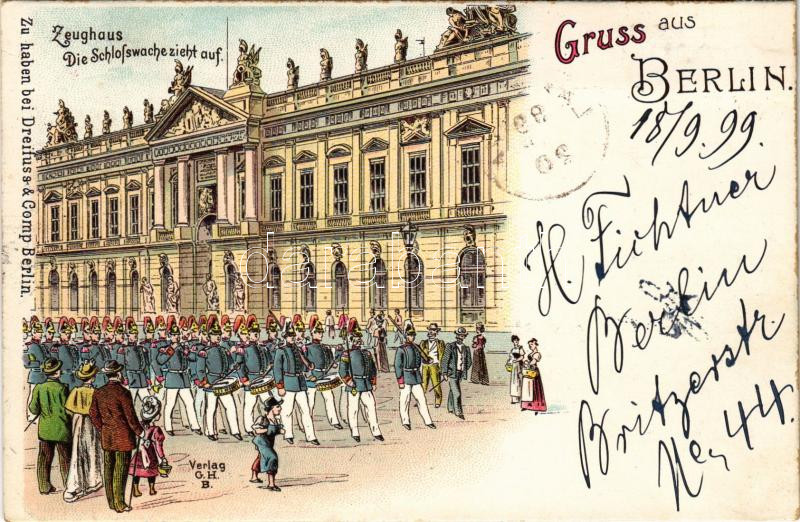 Zeughaus
Die Schloſswache zieht auf.
Zu haben bei Dreifuss & Comp Berlin.
Gruss aus
BERLIN.
18/9.99.
H. Fichtner
Berlin
Britzerstr.
No 44.
Verlag
G. H.
B.
darabanth